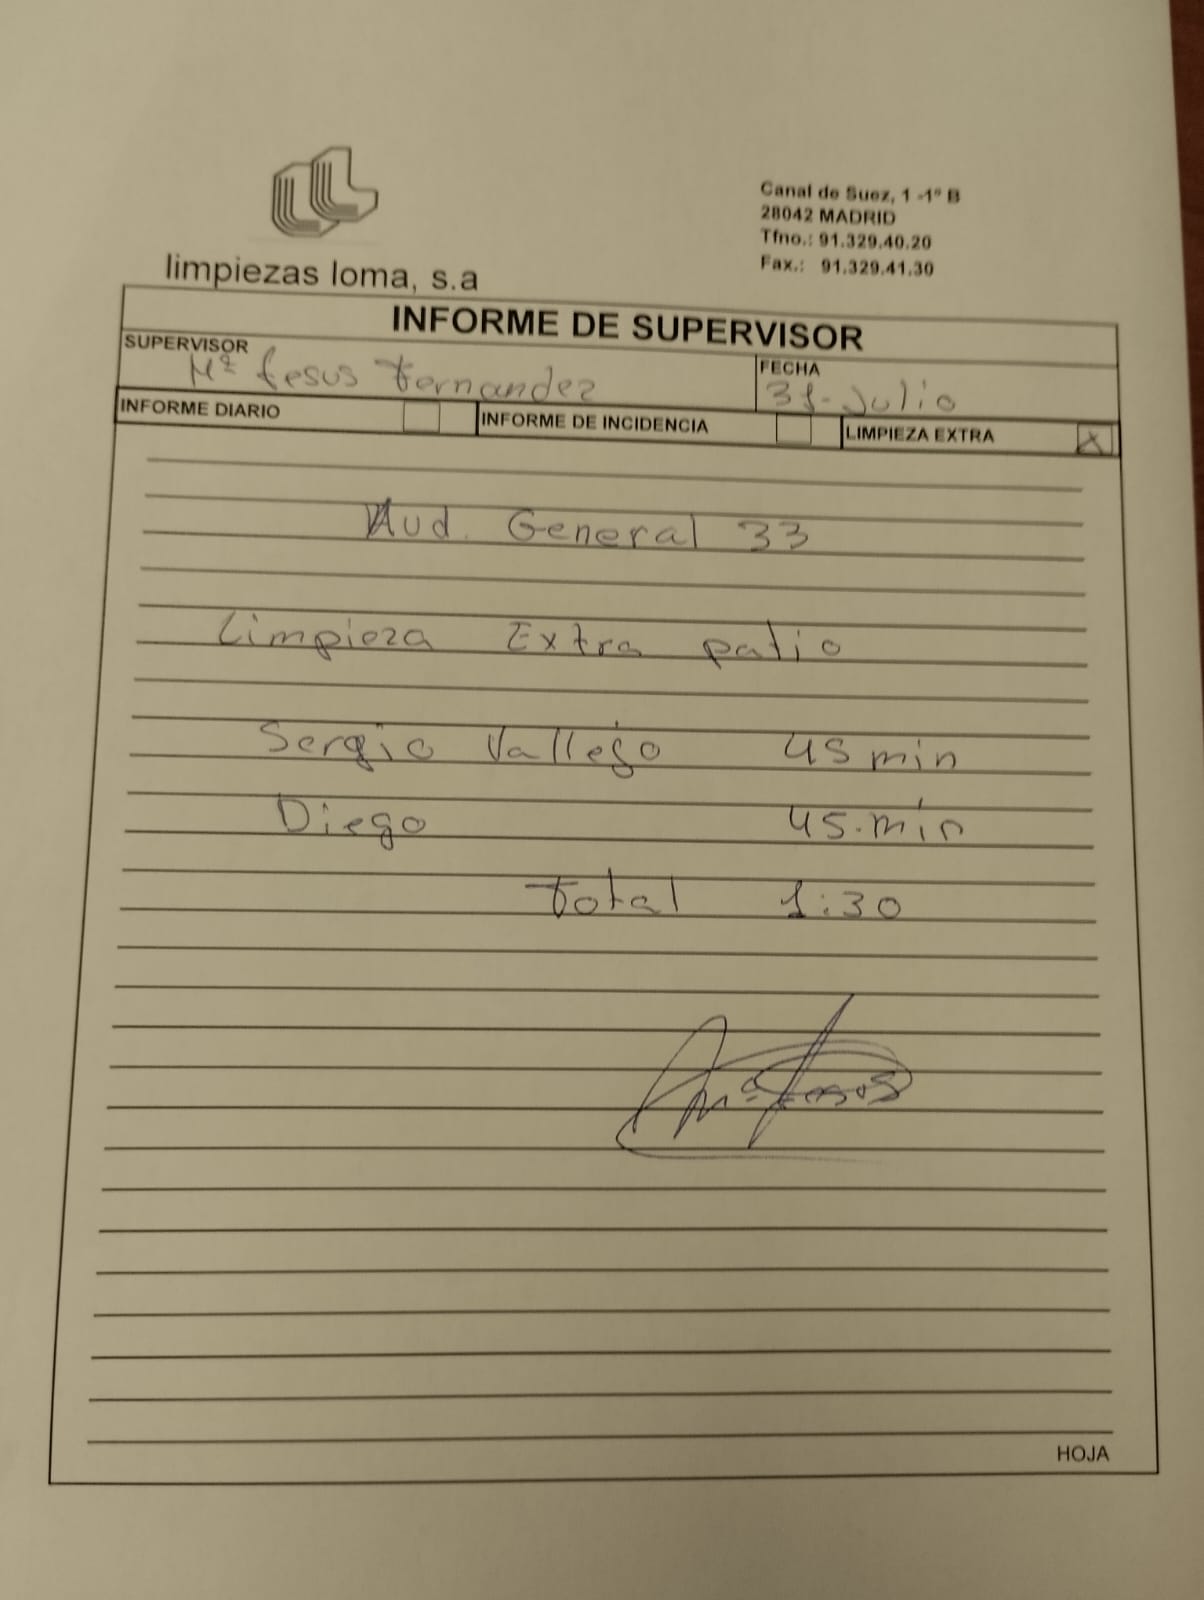 Canal de Suez, 1 -1º B
28042 MADRID
Tfno.: 91.329.40.20
Fax.: 91.329.41.30
limpiezas loma, s.a
INFORME DE SUPERVISOR
SUPERVISOR
Mª Jesus Fernandez
FECHA
31-Julio
INFORME DIARIO
INFORME DE INCIDENCIA
LIMPIEZA EXTRA
X
Aud. General 33
Limpieza Extra patio
Sergio Vallejo 45 min
Diego 45.min
Total 1:30
Mª Jesus
HOJA